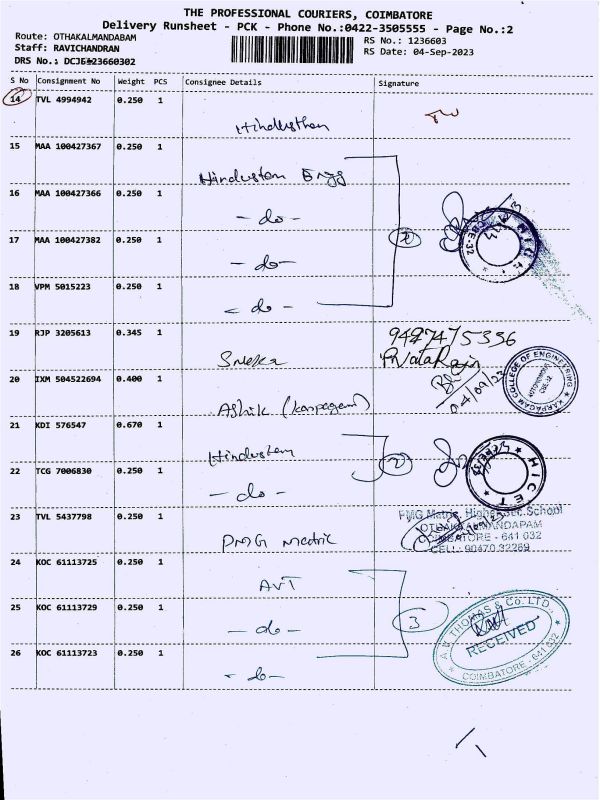 THE PROFESSIONAL COURIERS, COIMBATORE
Delivery Runsheet - PCK - Phone No.:0422-3505555 - Page No.:2
Route: OTHAKALMANDABAM
RS No.: 1236603
Staff: RAVICHANDRAN
RS Date: 04-Sep-2023
DRS No.: 23660302
S No Consignment No Weight PCS Consignee Details Signature
14 TVL 4994942 0.250 1
Hindusthan
15 MAA 100427367 0.250 1
Hindustan Engg
16 MAA 100427366 0.250 1
- do -
17 MAA 100427382 0.250 1
- do -
18 VPM 5015223 0.250 1
- do -
19 RJP 3205613 0.345 1
Sneka
20 IXM 504522694 0.400 1
04/09/23
KARPAGAM COLLEGE OF ENGINEERING
AUTONOMOUS
Ashik (karpagam)
21 KDI 576547 0.670 1
Hindustan
2
HICET
22 TCG 7006830 0.250 1
- do -
23 TVL 5437798 0.250 1
PMG Matric. Higher Sec. School
OTHAKALMANDAPAM
COIMBATORE - 641 032
CELL: 90470 32269
PMG Matric
24 KOC 61113725 0.250 1
AVT
25 KOC 61113729 0.250 1
- do -
3
A.V. THOMAS & Co. LTD.,
RECEIVED
COIMBATORE - 641 032
26 KOC 61113723 0.250 1
- do -